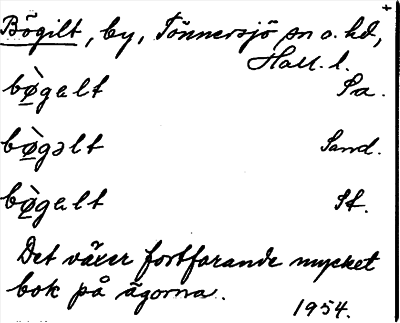 Bögilt, by, Tönnersjö sn o. hd,
Hall. l.
bø̀gəlt Sa.
bø̀gəlt Sand.
bø̀gəlt St.
Det växer fortfarande mycket
bok på ägorna.
1954.